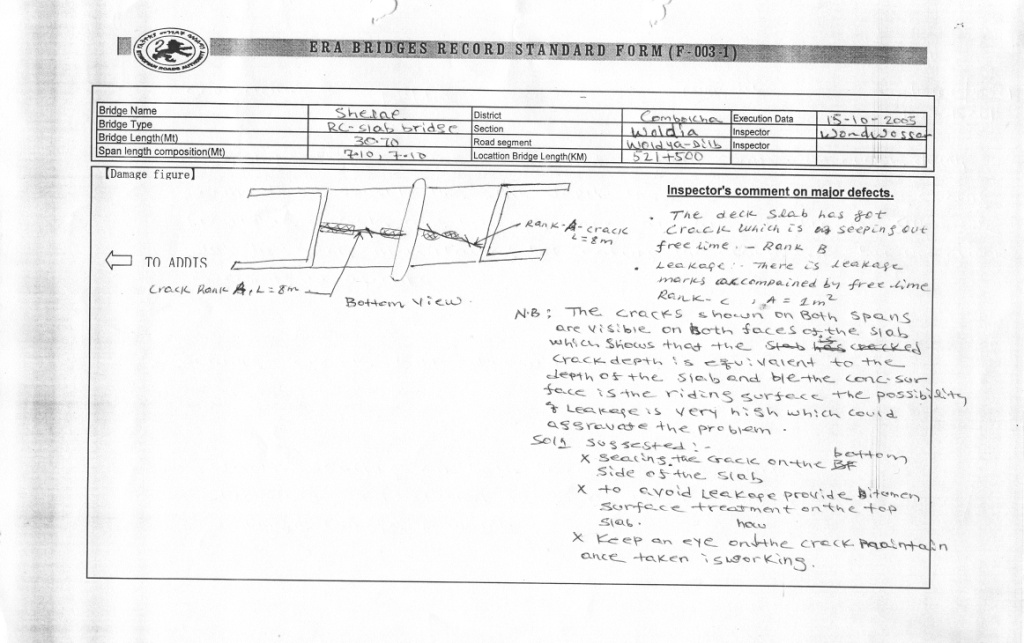 ERA BRIDGES RECORD STANDARD FORM (F-003-1)
Bridge Name Sherar District Combolcha Execution Data 15-10-2005
Bridge Type RC-slab bridge Section Woldia Inspector Wondwossen
Bridge Length(Mt) 30.70 Road segment Woldya-Dilb Inspector
Span length composition(Mt) 7.10, 7.10 Locattion Bridge Length(KM) 521+500
[Damage figure]
Inspector's comment on major defects.
Rank-A-crack
L=8m
TO ADDIS
Crack Rank A, L=8m
Bottom view.
. The deck slab has got
Crack which is seeping out
free lime. - Rank B
. Leakage:- There is leakage
marks accompained by free lime
Rank-c , A = 1m²
N.B: The cracks shown on Both spans
are visible on Both faces of the slab
which shows that the slab has cracked
is
crack depth is equivalent to the
depth of the slab and b/c the conc. sur
face is the riding surface the possibility
of Leakage is very high which could
aggravate the problem.
Sol1 suggested:-
x sealing the crack on the bottom
side of the slab
x to avoid Leakage provide Bitumen
surface treatment on the top
slab.
x Keep an eye on the crack how maintain
ance taken is working.